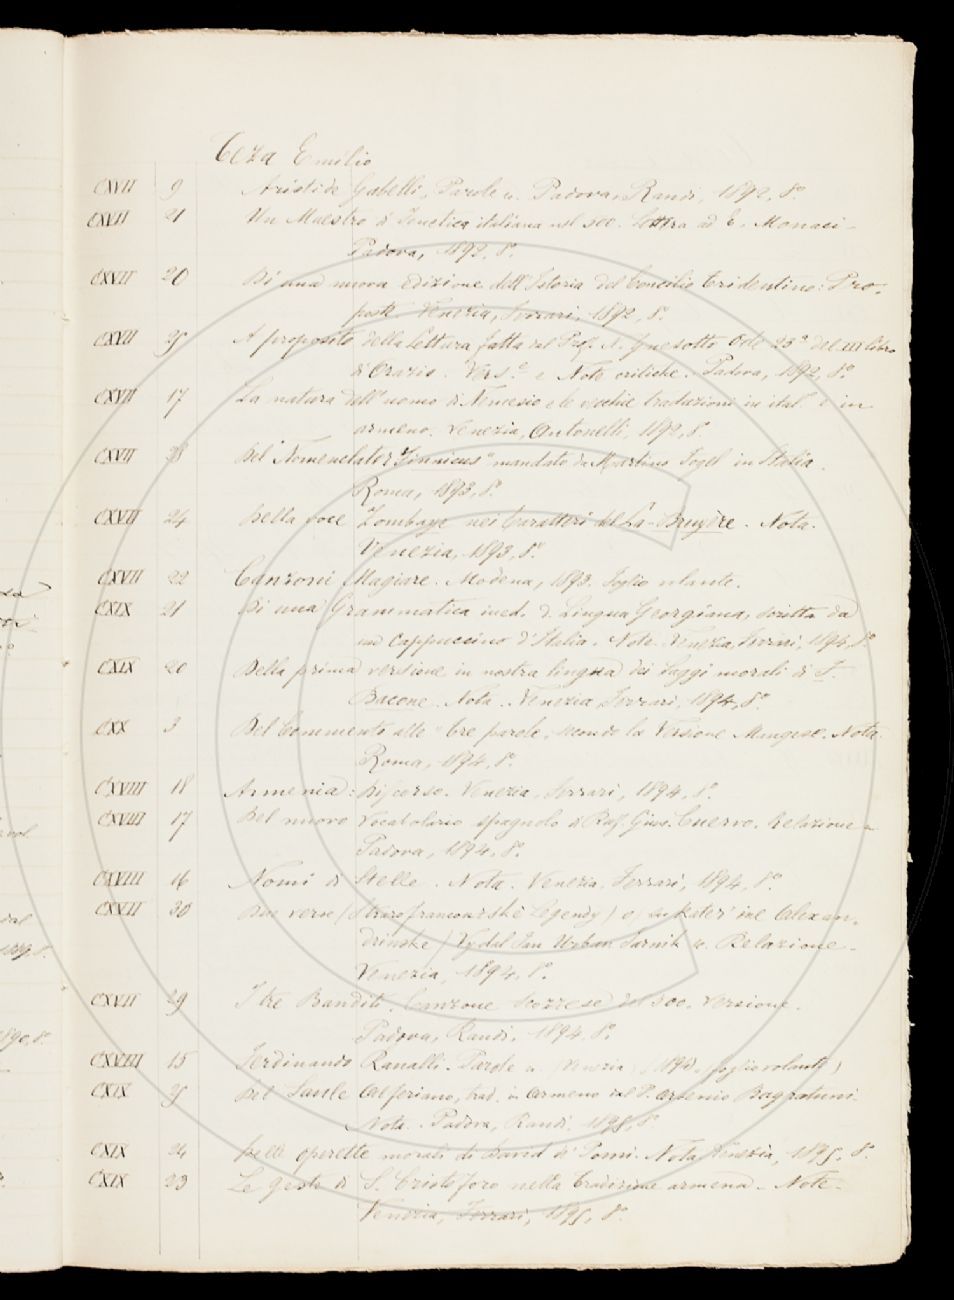 Teza Emilio
CXVII 9 Aristide Gabelli, Parole &. Padova, Randi, 1892, 8°.
CXVII 21 Un Maestro di fonetica italiana nel 500. Lettera ad E. Monaci -
Padova, 1892, 8°.
CXVII 20 Di una nuova edizione dell'Istoria del Concilio tridentino: Pro-
poste. Venezia, Ferrari, 1892, 8°.
CXVII A proposito della Lettura fatta dal Prof. A. Gnesotto Ode 23ª del III libro
d'Orazio. Vers.e e Note critiche. Padova, 1892, 8°.
CXVII 17 La natura dell'uomo di Nemesio e le vecchie traduzioni in ital. e in
armeno. Venezia, Antonelli, 1892, 8°.
CXVII Del "Nomenclator Finnicus" mandato da Martino Fogel in Italia.
Roma, 1893, 8°.
CXVII 24 Della voce Zombaye nei Caratteri del La-Bruyère. Nota.
Venezia, 1893, 8°.
CXVII 22 Canzoni Magiare. Modena, 1893. Foglio volante.
CXIX 21 Di una Grammatica ined. d. Lingua Georgiana, scritta da
un Cappuccino d'Italia. Nota. Venezia, Ferrari, 1894, 8°.
CXIX 20 Della prima versione in nostra lingua dei Saggi morali di F.
Bacone. Nota. Venezia, Ferrari, 1894, 8°.
CXX 3 Del Commento alle "tre parole, secondo la Versione Mangese. Nota.
Roma, 1894, 8°.
CXVIII 18 Armenia: Discorso. Venezia, Ferrari, 1894, 8°.
CXVIII 17 Del nuovo Vocabolario spagnolo di Raf. Gius. Cuervo. Relazione -
Padova, 1894, 8°.
CXVIII 16 Nomi di Stelle. Nota. Venezia, Ferrari, 1894, 8°.
CXVII 30 Due verse (Starofrancouzské Legendy) o sv. Kateřině Alexan-
drinské) Vydal Jan Urban Jarnik &. Relazione -
Venezia, 1894, 8°.
CXVII 29 I tre Banditi. Canzone Scozzese del 500. Versione.
Padova, Randi, 1894, 8°.
CXVIII 15 Ferdinando Ranalli. Parole &. (Venezia) (foglio volante)
CXIX Del Saule Alferiano, trad. in Armeno dal P. Arsenio Bagratuni.
Nota. Padova, Randi, 1895, 8°
CXIX 24 Delle operette morali di David de' Pomi. Nota. Venezia, 1895, 8°.
CXIX 23 Le geste di S. Cristoforo nella tradizione armena. Nota.
Venezia, Ferrari, 1895, 8°.